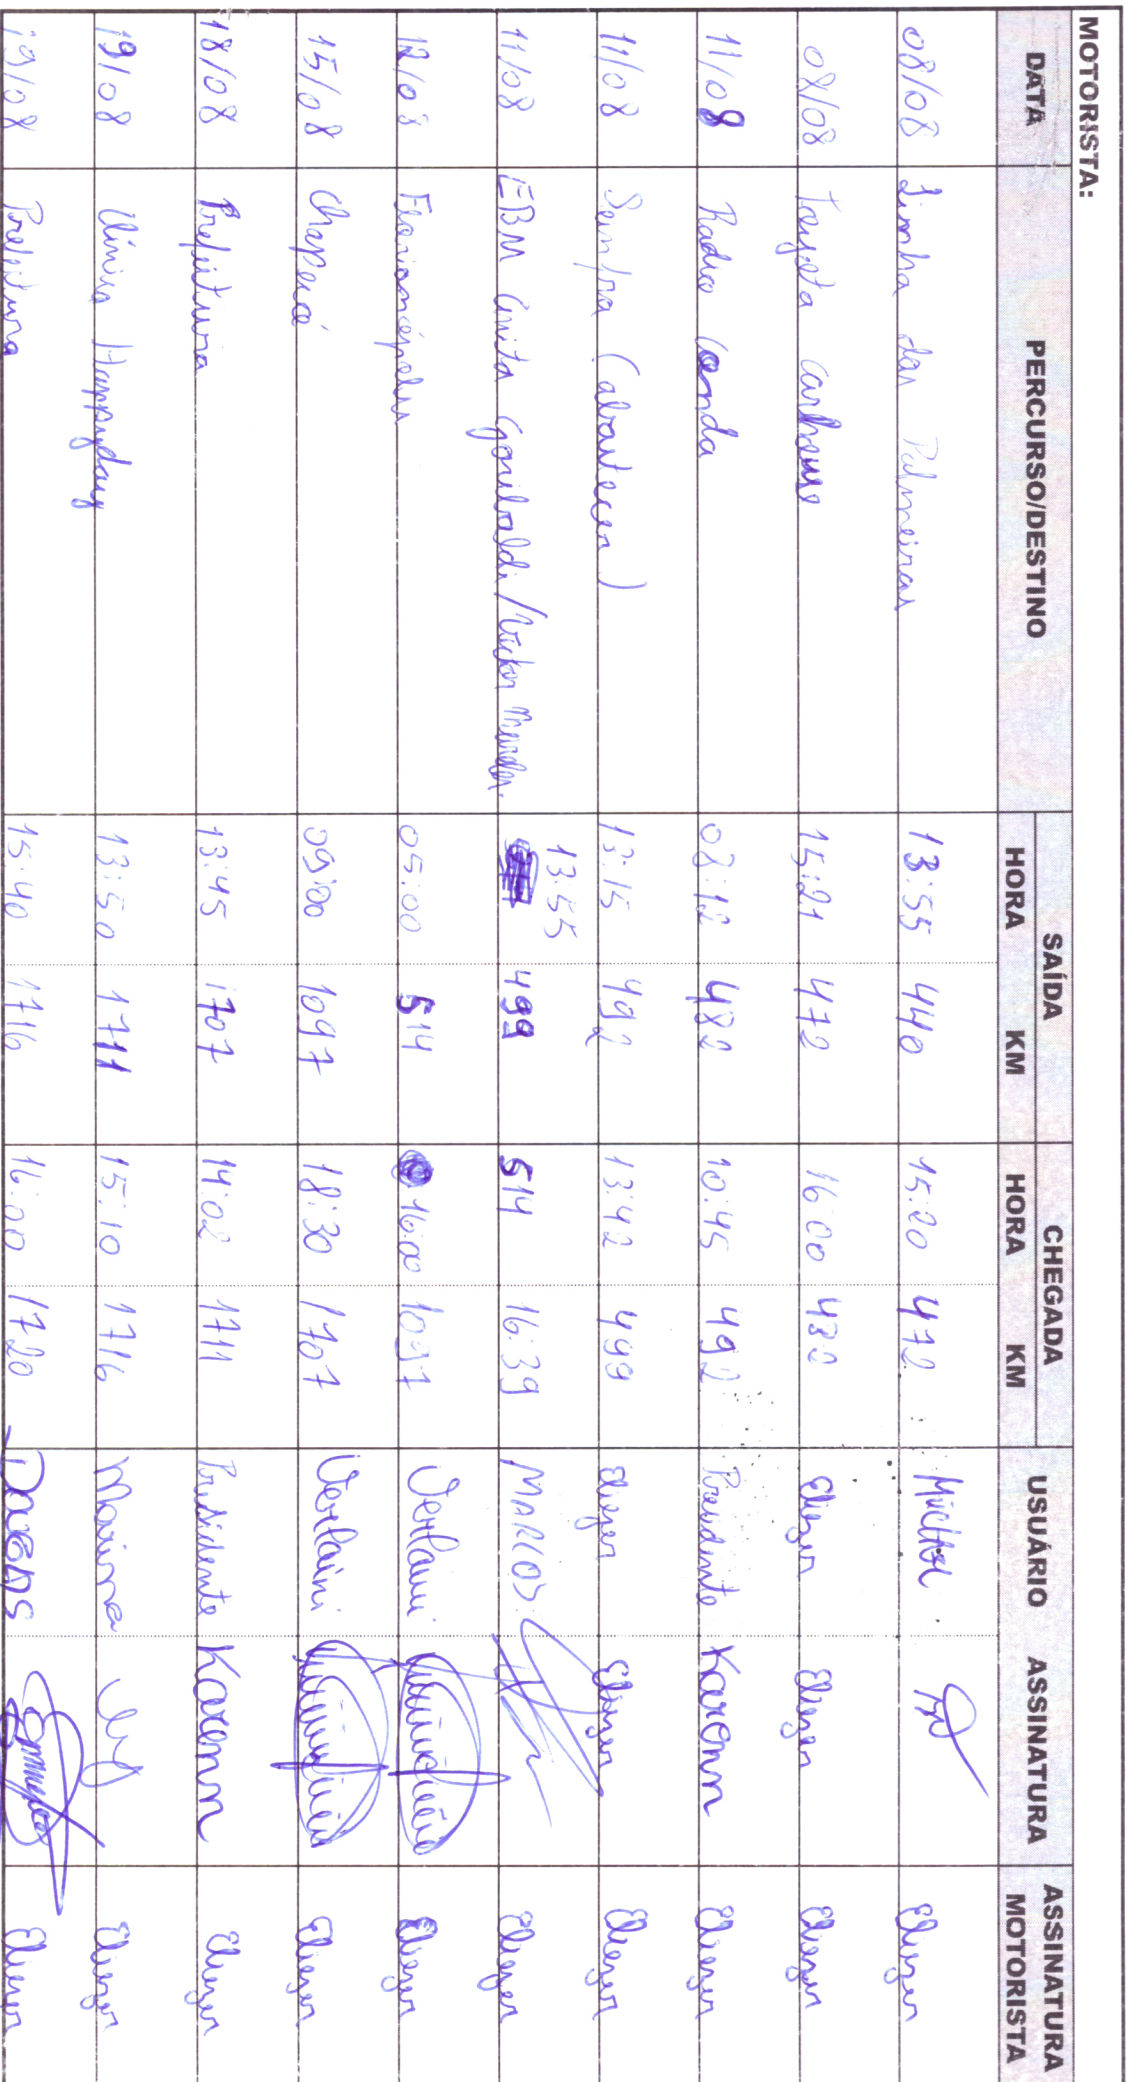 MOTORISTA:
DATA PERCURSO/DESTINO SAÍDA CHEGADA USUÁRIO ASSINATURA ASSINATURA MOTORISTA
HORA KM HORA KM
08/08 Linha das Palmeiras 13:55 440 15:20 472 Eliezer
08/08 15:21 472 16:00 482 Eliezer Eliezer Eliezer
11/08 Radio Conda 08:12 482 10:45 492 Presidente Karenn Eliezer
11/08 Seinfra (abastecer) 13:15 492 13:42 499 Eliezer Eliezer Eliezer
13:55
11/08 EBM Anita Garibaldi / Victor 499 514 16:39 MARCOS Eliezer
12/08 Florianópolis 05:00 514 16:00 1097 Verlaini Eliezer
15/08 Chapecó 09:00 1097 18:30 1707 Verlaini Eliezer
18/08 Prefeitura 13:45 1707 14:02 1711 Presidente Karenn Eliezer
19/08 Clinica Happyday 13:50 1711 15:10 1716 Mariana Eliezer
19/08 Prefeitura 15:40 1716 16:00 1720 DOUGLAS Eliezer